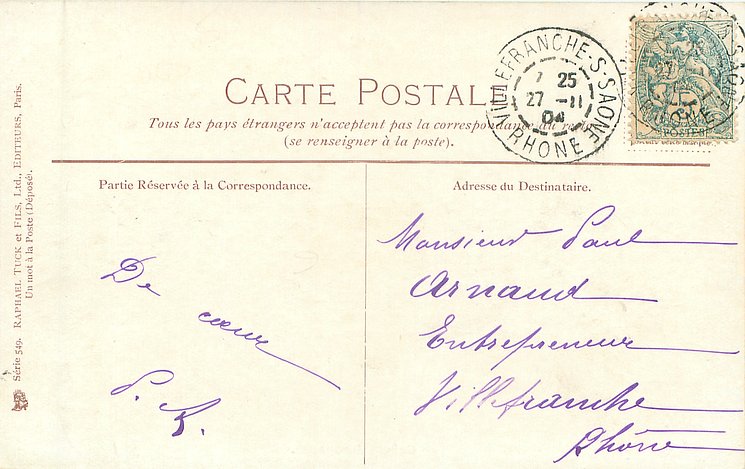 CARTE POSTALE
Tous les pays étrangers n'acceptent pas la correspondance au recto
(se renseigner à la poste).
VILLEFRANCHE-S-SAONE
25
27 -11
04
RHONE
POSTES
Partie Réservée à la Correspondance.
De
cœur
P. R.
Adresse du Destinataire.
Monsieur Paul
Arnaud
Entrepreneur
Villefranche
Rhône
Série 549. RAPHAEL TUCK et FILS, Ltd., EDITEURS, Paris.
Un mot à la Poste (Déposé).